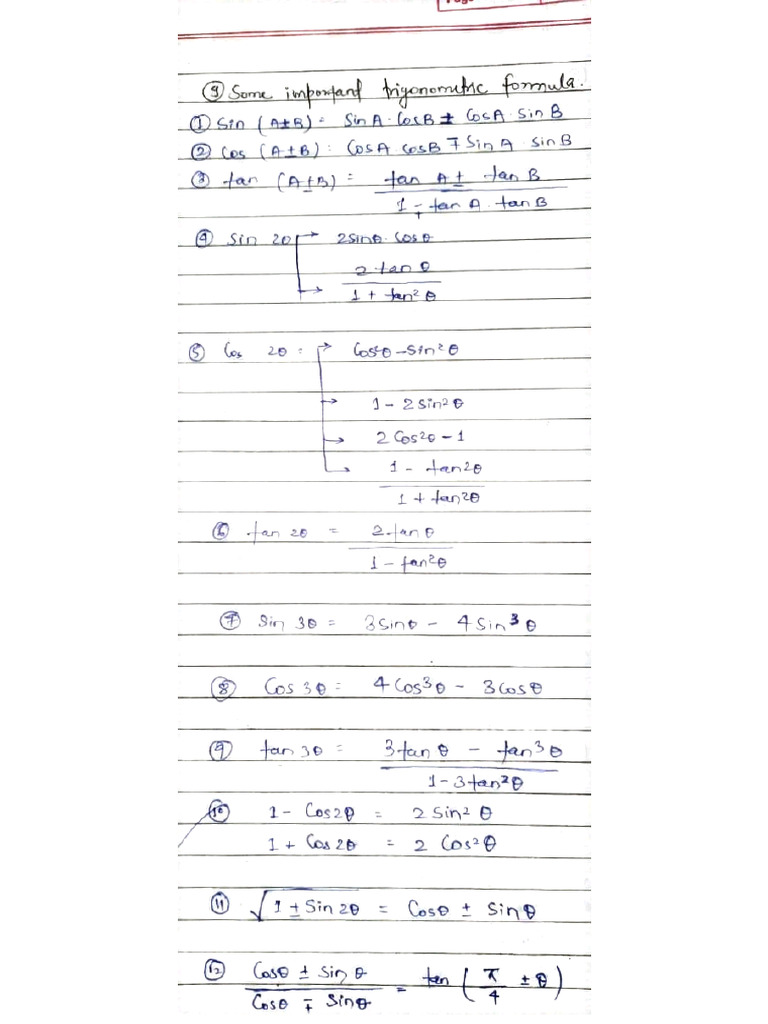 ⑨ Some important trigonometric formula.
① Sin (A±B) = SinA·CosB ± CosA·SinB
② Cos (A±B) = CosA·CosB ∓ SinA·SinB
③ tan (A±B) = tan A ± tan B
1 ∓ tan A·tan B
④ Sin 2θ → 2sinθ·Cosθ
2 tan θ
→ 1 + tan² θ
⑤ Cos 2θ = → Cos²θ - Sin²θ
→ 1 - 2 Sin²θ
→ 2 Cos²θ - 1
→ 1 - tan²θ
1 + tan²θ
⑥ tan 2θ = 2·tan θ
1 - tan²θ
⑦ Sin 3θ = 3 Sinθ - 4 Sin³ θ
⑧ Cos 3θ = 4 Cos³θ - 3 Cosθ
⑨ tan 3θ = 3 tan θ - tan³θ
1 - 3 tan²θ
⑩ 1 - Cos2θ = 2 Sin² θ
1 + Cos 2θ = 2 Cos²θ
⑪ √1 ± Sin 2θ = Cosθ ± Sinθ
⑫ Cosθ ± Sinθ = tan (π/4 ± θ)
Cosθ ∓ Sinθ